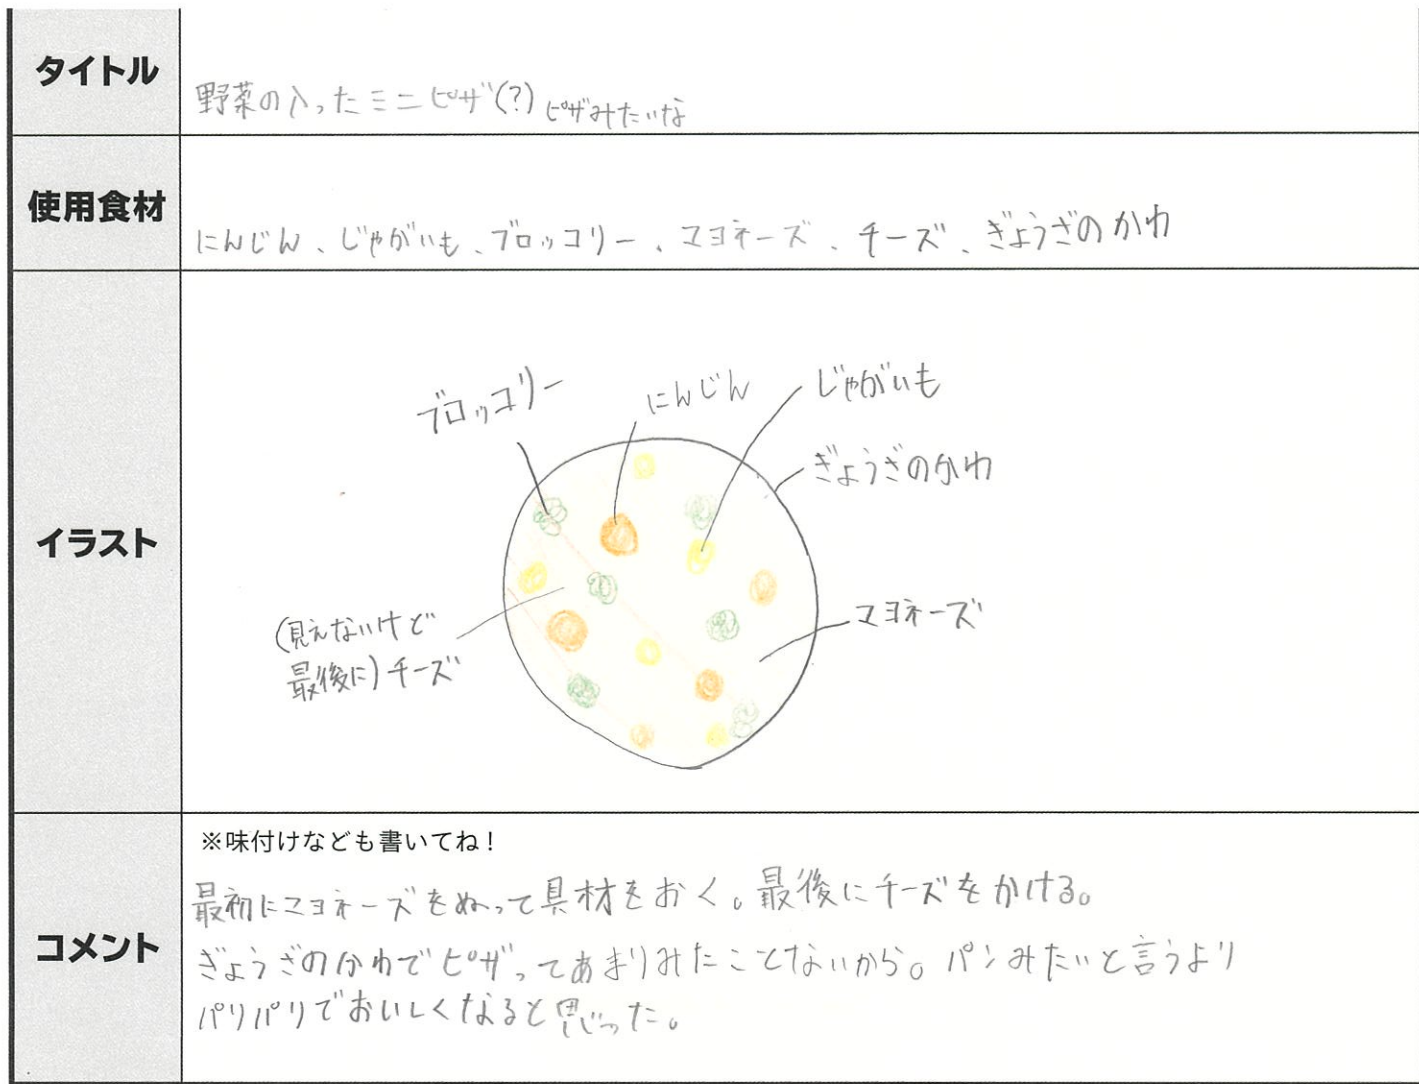 タイトル
野菜の入ったミニピザ(?)ピザみたいな
使用食材
にんじん、じゃがいも、ブロッコリー、マヨネーズ、チーズ、ぎょうざのかわ
イラスト
ブロッコリー
にんじん
じゃがいも
ぎょうざのかわ
マヨネーズ
(見えないけど
最後に)チーズ
コメント
※味付けなども書いてね!
最初にマヨネーズをぬって具材をおく。最後にチーズをかける。
ぎょうざのかわでピザってあまりみたことないから。パンみたいと言うより
パリパリでおいしくなると思った。